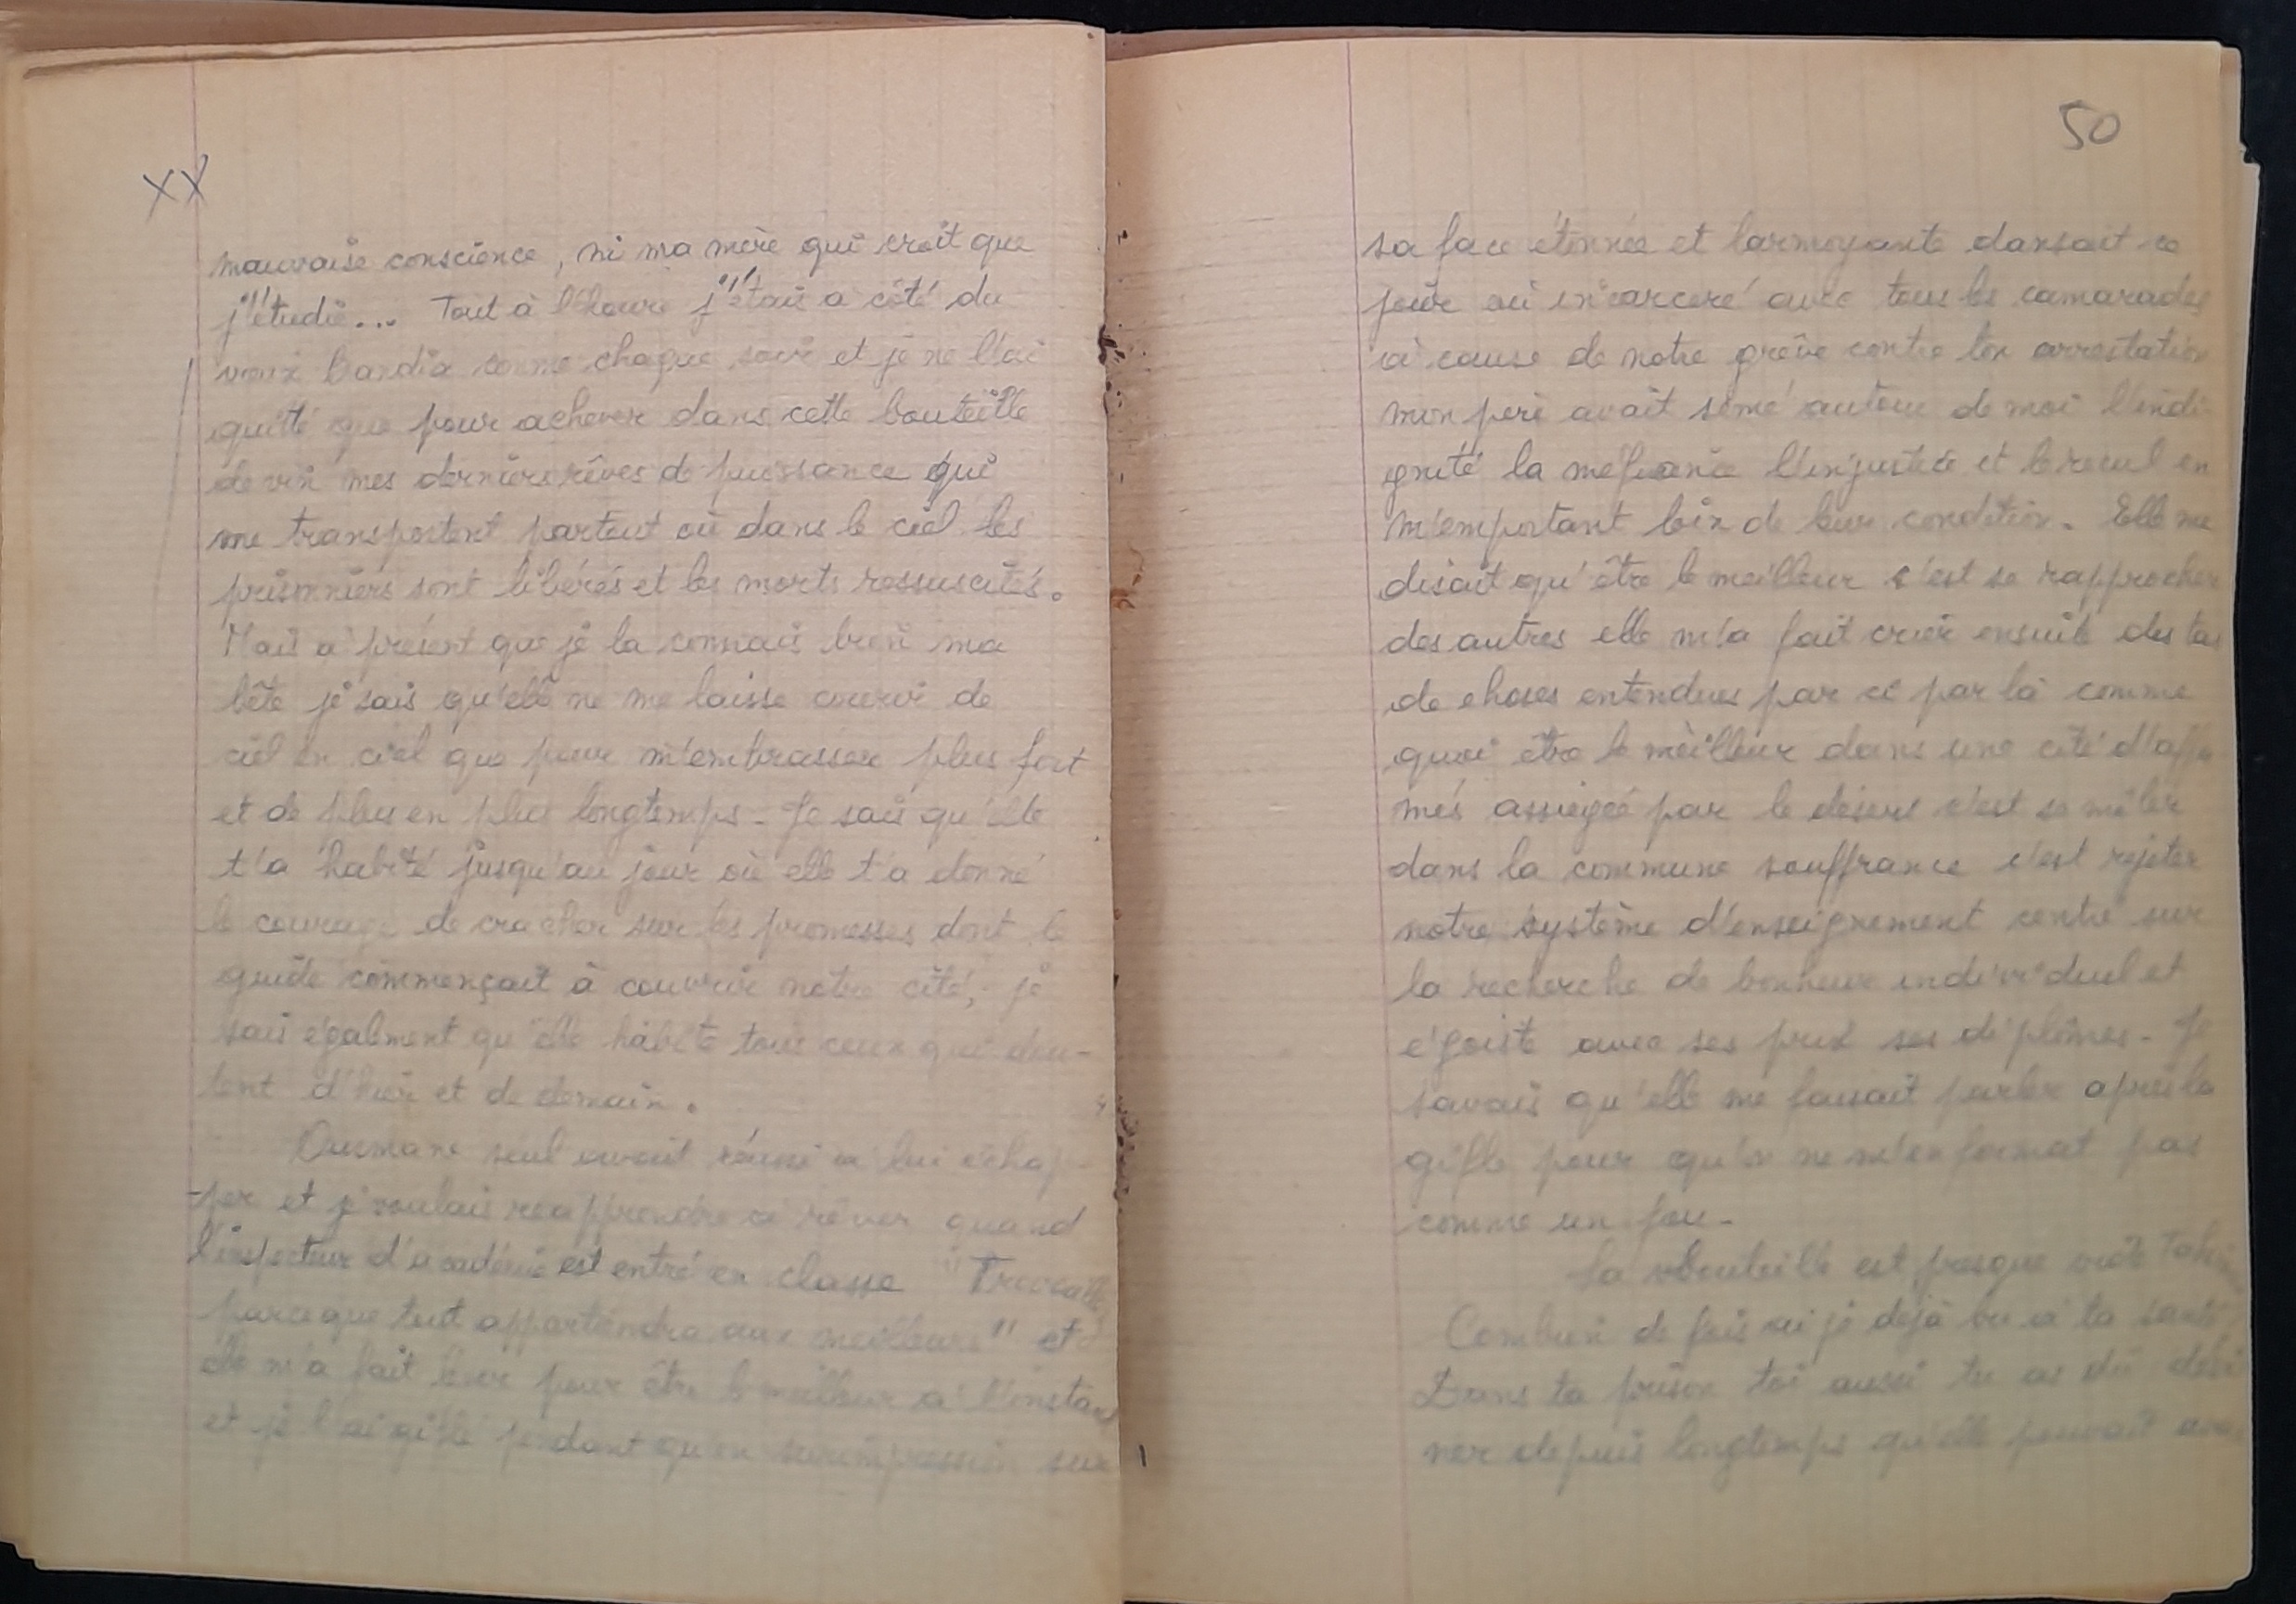 XX
mauvaise conscience, ni ma mère qui croit que
j'étudie... Tout à l'heure j'étais à côté du
vieux Bandia comme chaque soir et je ne l'ai
quitté que pour achever dans cette bouteille
de vin mes derniers rêves de puissance qui
me transportent partout où dans le ciel les
prisonniers sont libérés et les morts ressuscités.
Mais à présent que je la connais bien ma
bête je sais qu'elle ne me laisse courir de
ciel en ciel que pour m'embrasser plus fort
et de plus en plus longtemps - Je sais qu'elle
t'a habité jusqu'au jour où elle t'a donné
le courage de cracher sur les promesses dont le
guide commençait à couvrir notre cité, je
sais également qu'elle habite tous ceux qui dou-
tent d'hier et de demain.
Ousmane seul avait réussi à lui échap-
-per et je voulais réapprendre à rêver quand
l'inspecteur d'académie est entré en classe "Travaillez
parceque tout appartiendra aux meilleurs" et
elle m'a fait lever pour être le meilleur à l'instant
et je l'ai giflé pendant qu'en surimpression sur
50
sa face étonnée et larmoyante dansait ce
jour où incarcéré avec tous les camarades
à cause de notre grève contre ton arrestation
mon père avait semé autour de moi l'indi-
gnité la méfiance l'injustice et le recul en
m'emportant loin de leur condition. Elle me
disait qu'être le meilleur c'est se rapprocher
des autres elle m'a fait crier ensuite des tas
de choses entendues par ci par là comme
quoi être le meilleur dans une cité d'affa-
més assiégée par le désert c'est se mêler
dans la commune souffrance c'est rejeter
notre système d'enseignement centré sur
la recherche de bonheur individuel et
égoiste avec ses prix ses diplômes - Je
savais qu'elle me faisait parler après la
gifle pour qu'on ne m'enfermat pas
comme un fou -
La bouteille est presque vide
Combien de fois ai je déjà bu à ta santé
Dans ta prison toi aussi tu as dû devi
ner depuis longtemps qu'elle pouvait